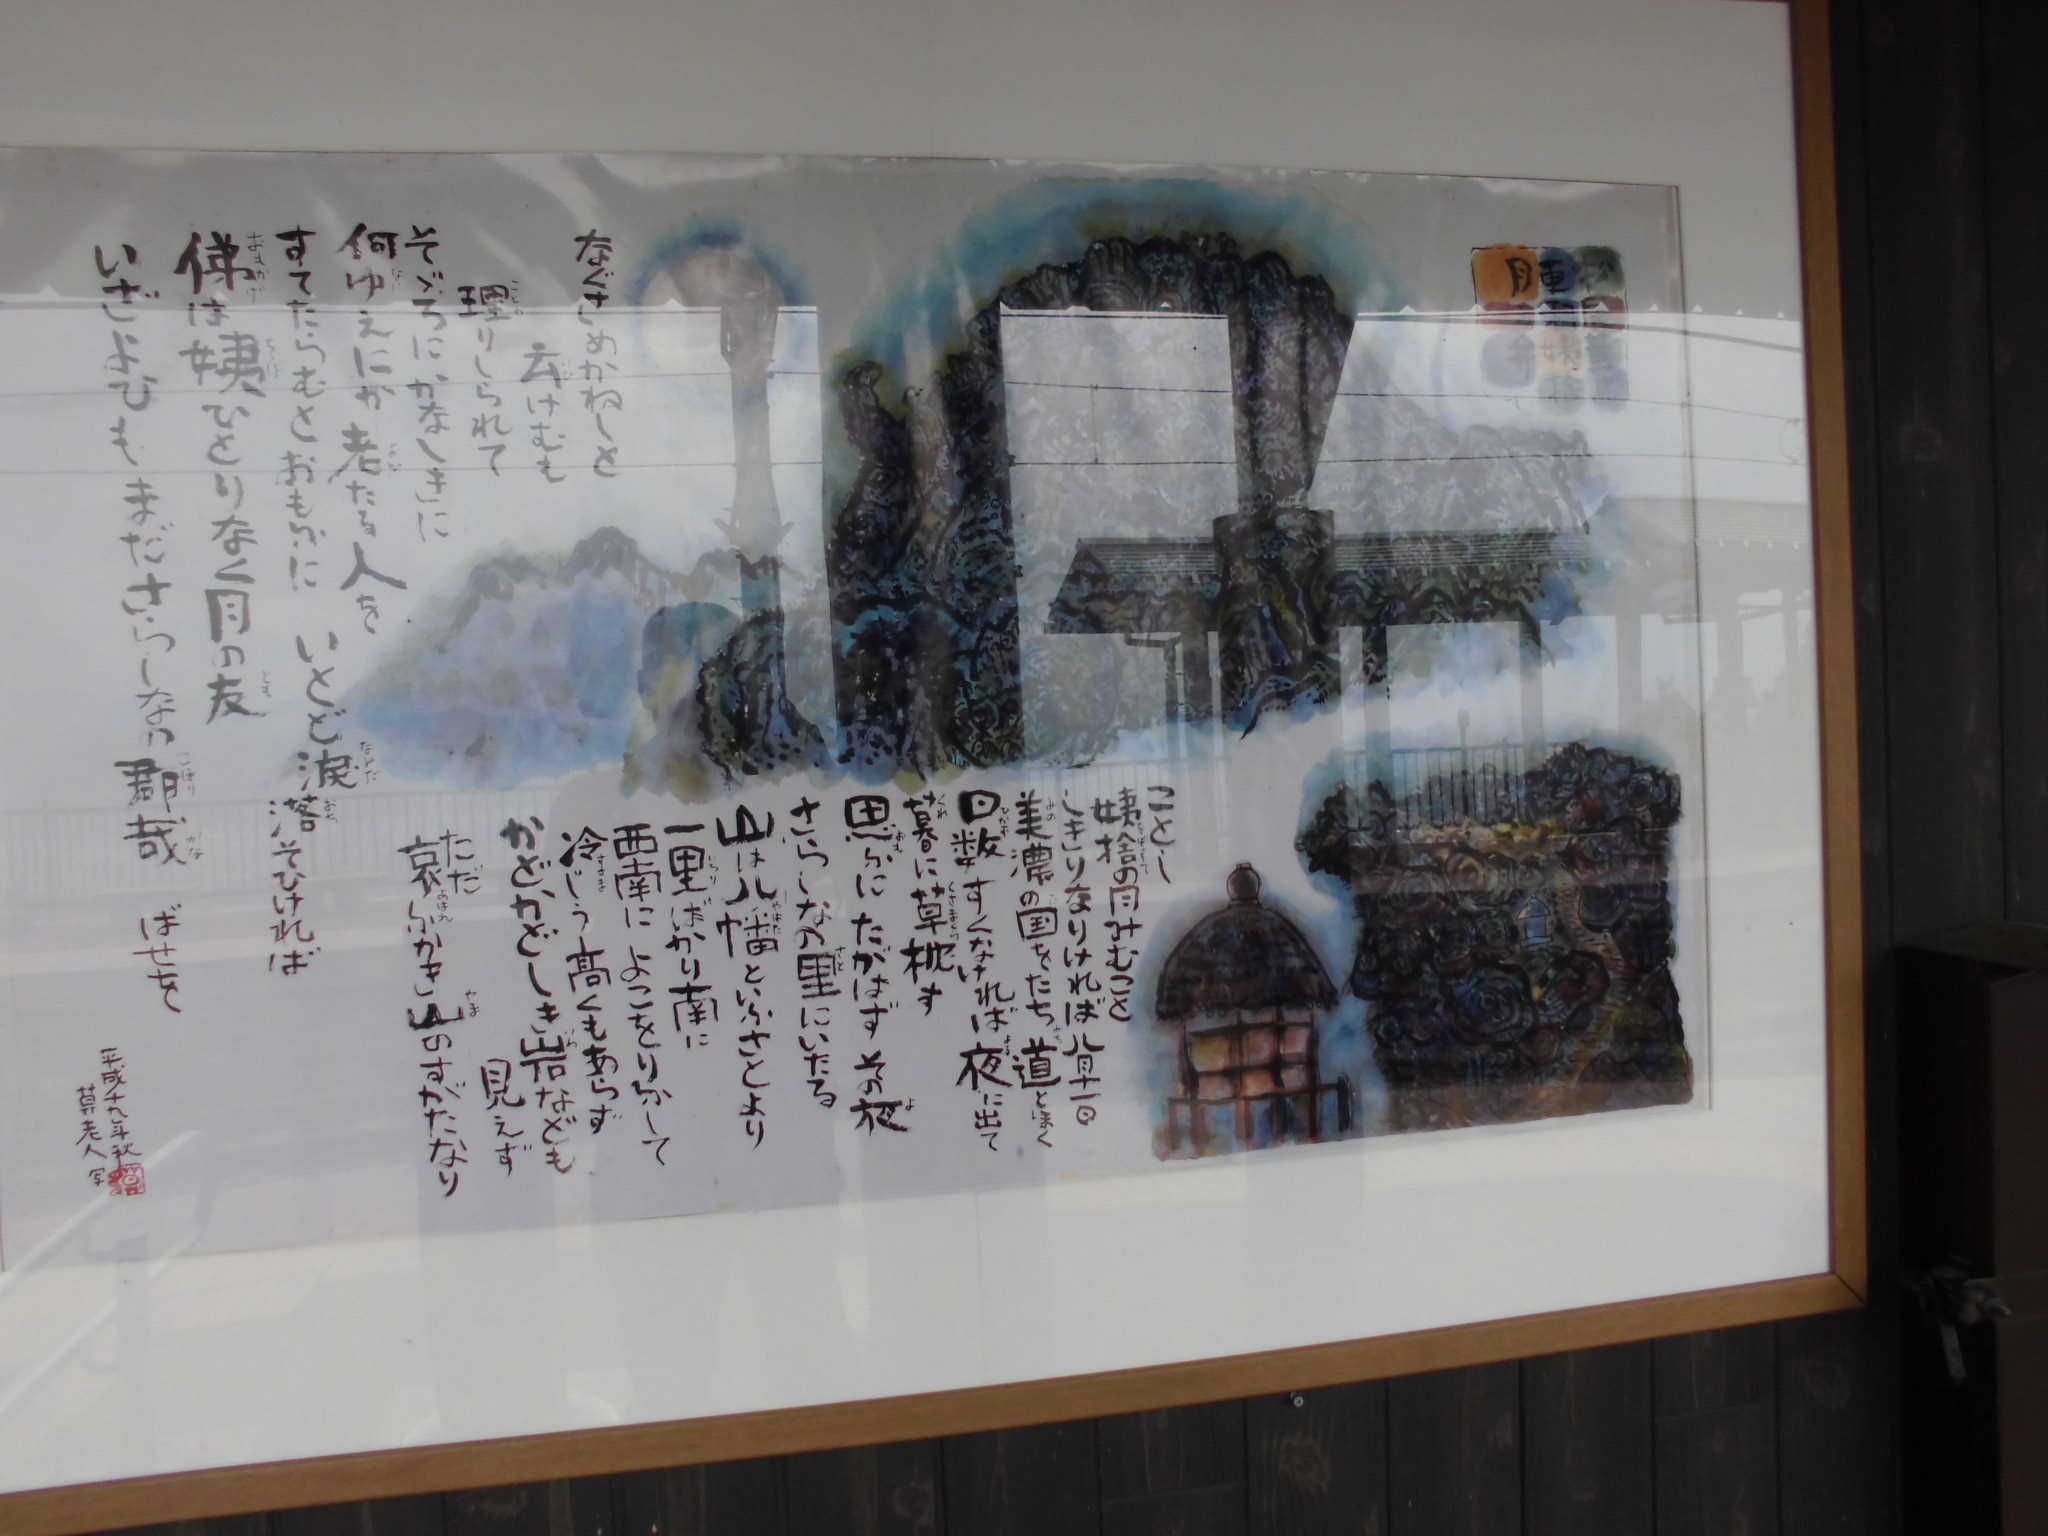 月
姨捨
ことし
姨捨の月みむこと
しきりなりければ八月十一日
美濃の国をたち道とほく
日数すくなければ夜に出て
暮に草枕す
思ふにたがはずその夜
さらしなの里にいたる
山は八幡といふさとより
一里ばかり南に
西南によこをりふして
冷じう高くもあらず
かどかどしき岩なども
見えず
ただ
哀ふかき山のすがたなり
なぐさめかねしと
云けむも
理りしられて
そゞろにかなしきに
何ゆえにか老たる人を
すてたらむとおもふに いとど涙
落そひければ
俤は姨ひとりなく月の友
いざよひもまださらしなの郡哉 ばせを
平成十九年秋